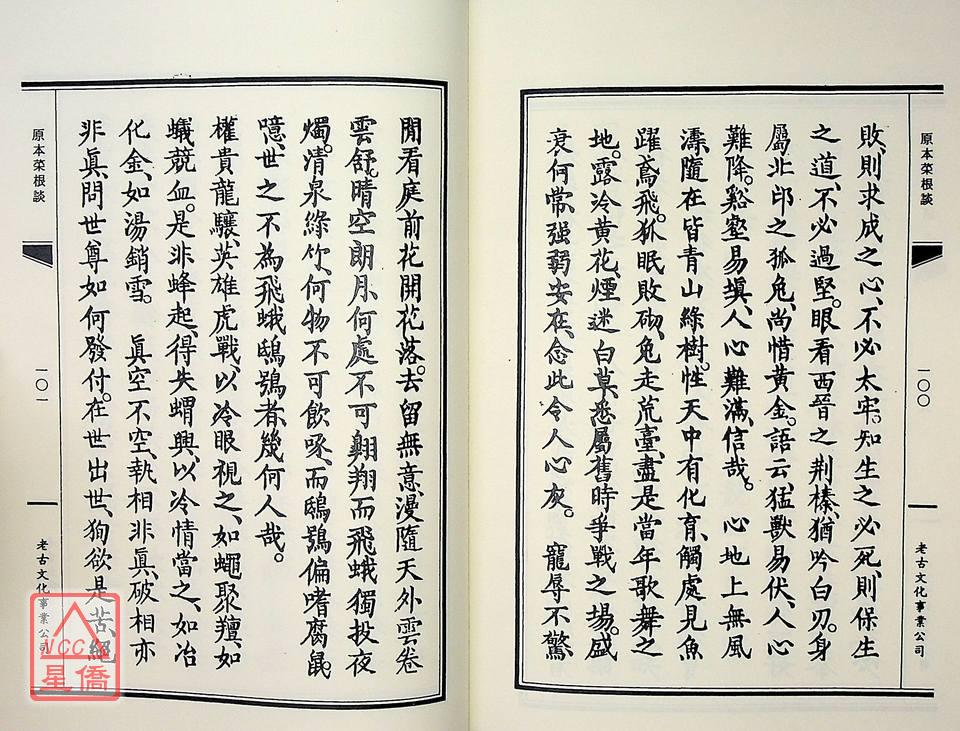 原本菜根談
一〇〇
老古文化事業公司
敗、則求成之心、不必太牢。知生之必死、則保生
之道、不必過堅。眼看西晉之荆榛、猶吟白刃。身
屬北邙之狐兔、尚惜黃金。語云、猛獸易伏、人心
難降。谿壑易填、人心難滿、信哉。 心地上無風
濤、隨在皆青山綠樹。性天中有化育、觸處見魚
躍鳶飛。狐眠敗砌、兔走荒臺、盡是當年歌舞之
地。露冷黃花、煙迷白草、悉屬舊時爭戰之場。盛
衰何常、强弱安在、念此令人心灰。 寵辱不驚
閒看庭前花開花落。去留無意、漫隨天外雲卷
雲舒。晴空朗月、何處不可翺翔、而飛蛾獨投夜
燭。清泉綠竹、何物不可飲啄、而鴟鴞偏嗜腐鼠。
噫、世之不為飛蛾鴟鴞者、幾何人哉。
權貴龍驤、英雄虎戰、以冷眼視之、如蠅聚羶、如
蟻競血。是非蜂起、得失蝟興、以冷情當之、如冶
化金、如湯銷雪。 眞空不空、執相非眞、破相亦
非眞、問世尊如何發付。在世出世、狥欲是苦、絕
原本菜根談
一〇一
老古文化事業公司
NCC
星僑